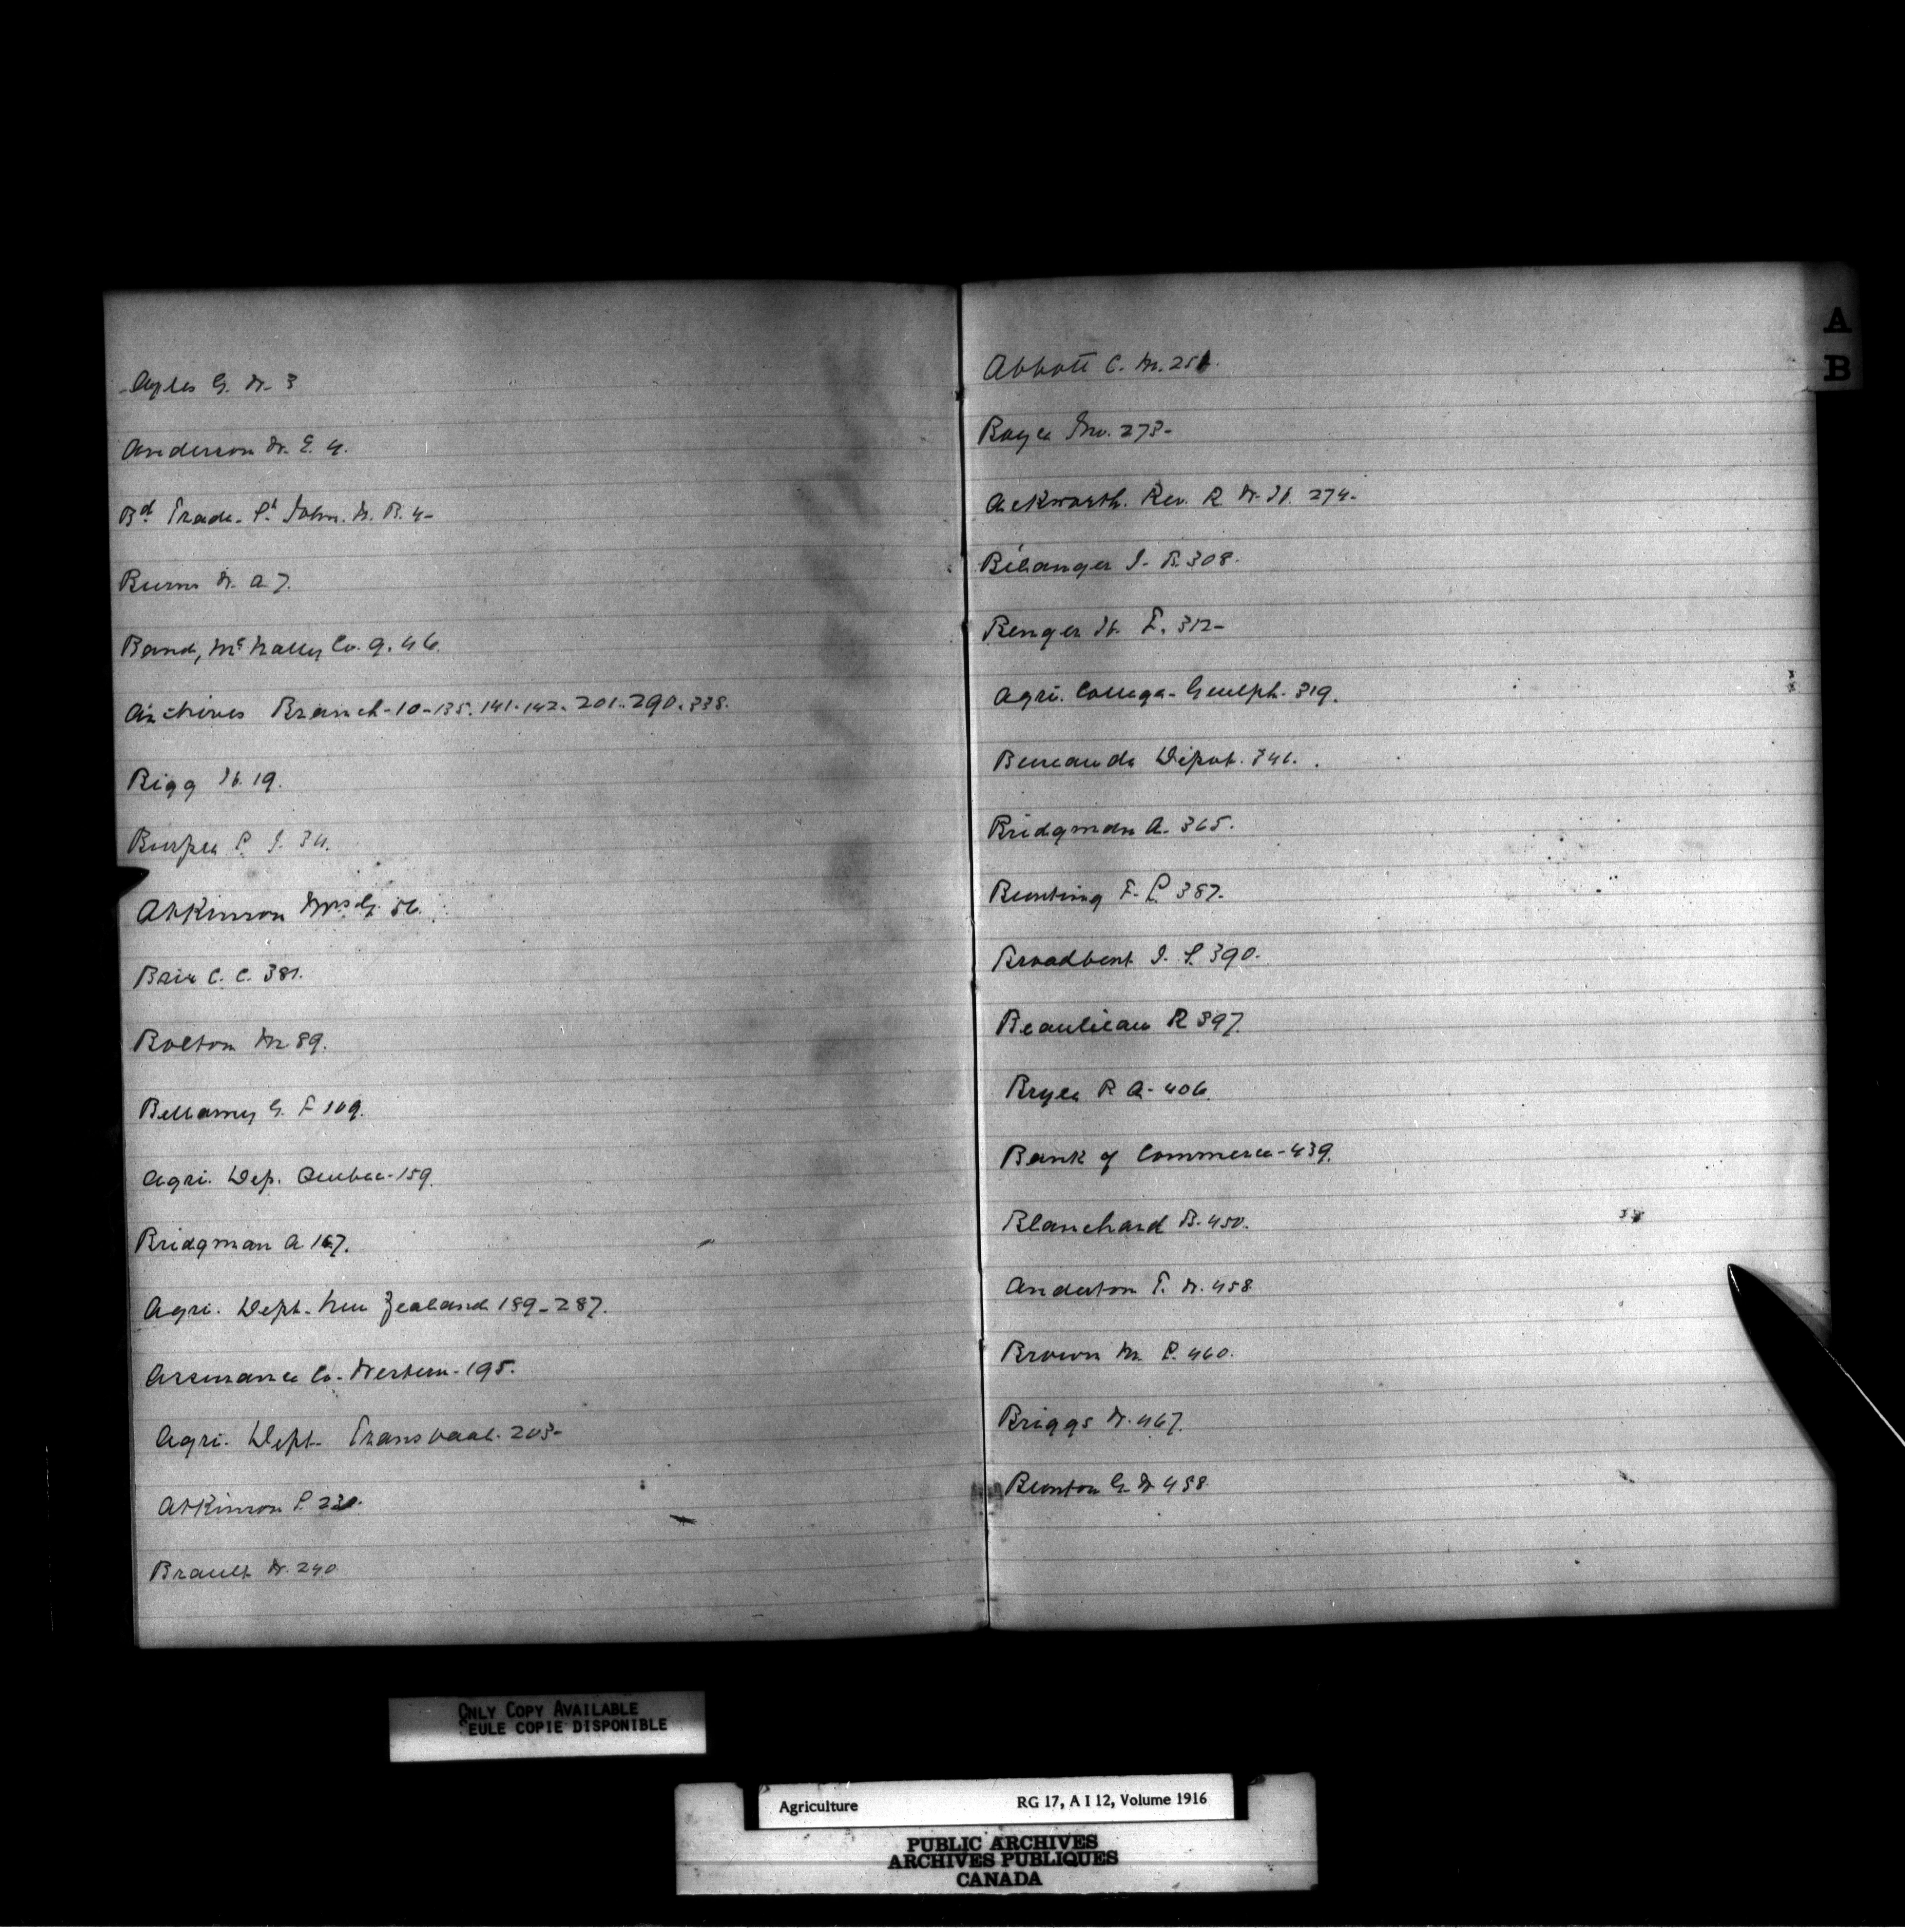 Ayles G. W. 3
Anderson W. E. 4.
Bd. Trade. St John. N. B. 4-
Burns W. A 7.
Band, McNally Co. 9. 46.
Archives Branch-10-135. 141-142. 201. 290. 338.
Bigg H. 19.
Burpee L. J. 34.
Atkinson Mrs G. 56.
Brix C. C. 381.
Bolton M. 89.
Bellamy G. F 109.
Agri. Dep. Quebec-159.
Bridgman A 167.
Agri. Dept. New Zealand 189-287.
Assurance Co. Western-195.
Agri. Dept. Transvaal-203-
Atkinson P. 230.
Brault W. 240
A
B
Abbott C. M. 251.
Boyce Jno. 273-
Ackworth. Rev. R. W. H. 274-
Bélanger J. B. 308.
Benger H. E. 312-
Agri. College-Guelph-319.
Bermuda Dépot. 346.
Bridgman A. 365.
Bunting F. L. 387.
Broadbent J. S. 390.
Beaulieau R 397.
Bryce R A-406.
Bank of Commerce-439.
Blanchard B. 450.
Anderton T. W. 458
Brown M. P. 460.
Briggs W. 467.
Bunton G. W 458.
ONLY COPY AVAILABLE
SEULE COPIE DISPONIBLE
Agriculture RG 17, A I 12, Volume 1916
PUBLIC ARCHIVES
ARCHIVES PUBLIQUES
CANADA